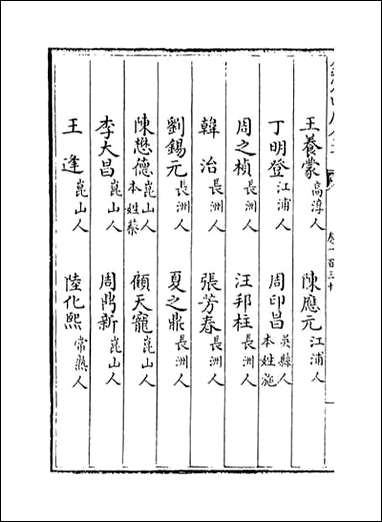 王養蒙 高淳人 陳應元 江浦人
丁明登 江浦人 周印昌 吳縣人 本姓施
周之楨 長洲人 汪邦柱 長洲人
韓治 長洲人 張芳春 長洲人
劉錫元 長洲人 夏之鼎 長洲人
陳懋德 崑山人 本姓蔡 顧天寵 崑山人
李大昌 崑山人 周鼎新 崑山人
王逢 崑山人 陸化熙 常熟人
卷一百三十